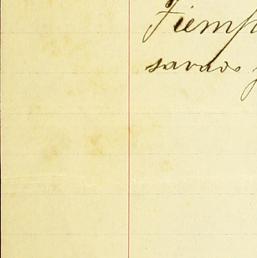 Tiemp
savado